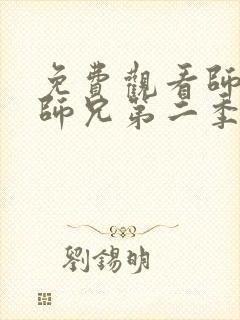 免費觀看師
師兄第二季
劉錫明